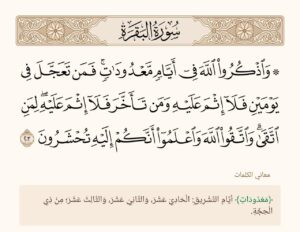 سُورَةُ البَقَرَةِ
۞ وَٱذۡكُرُواْ ٱللَّهَ فِيٓ أَيَّامٖ مَّعۡدُودَٰتٖۚ فَمَن تَعَجَّلَ فِي
يَوۡمَيۡنِ فَلَآ إِثۡمَ عَلَيۡهِ وَمَن تَأَخَّرَ فَلَآ إِثۡمَ عَلَيۡهِۖ لِمَنِ
ٱتَّقَىٰۗ وَٱتَّقُواْ ٱللَّهَ وَٱعۡلَمُوٓاْ أَنَّكُمۡ إِلَيۡهِ تُحۡشَرُونَ
معاني الكلمات
﴿مَعْدُودَاتٍ﴾ أَيَّامِ التَّشْرِيقِ: الْحَادِيَ عَشَرَ، وَالثَّانِيَ عَشَرَ، وَالثَّالِثَ عَشَرَ؛ مِنْ ذِي
الْحِجَّةِ.